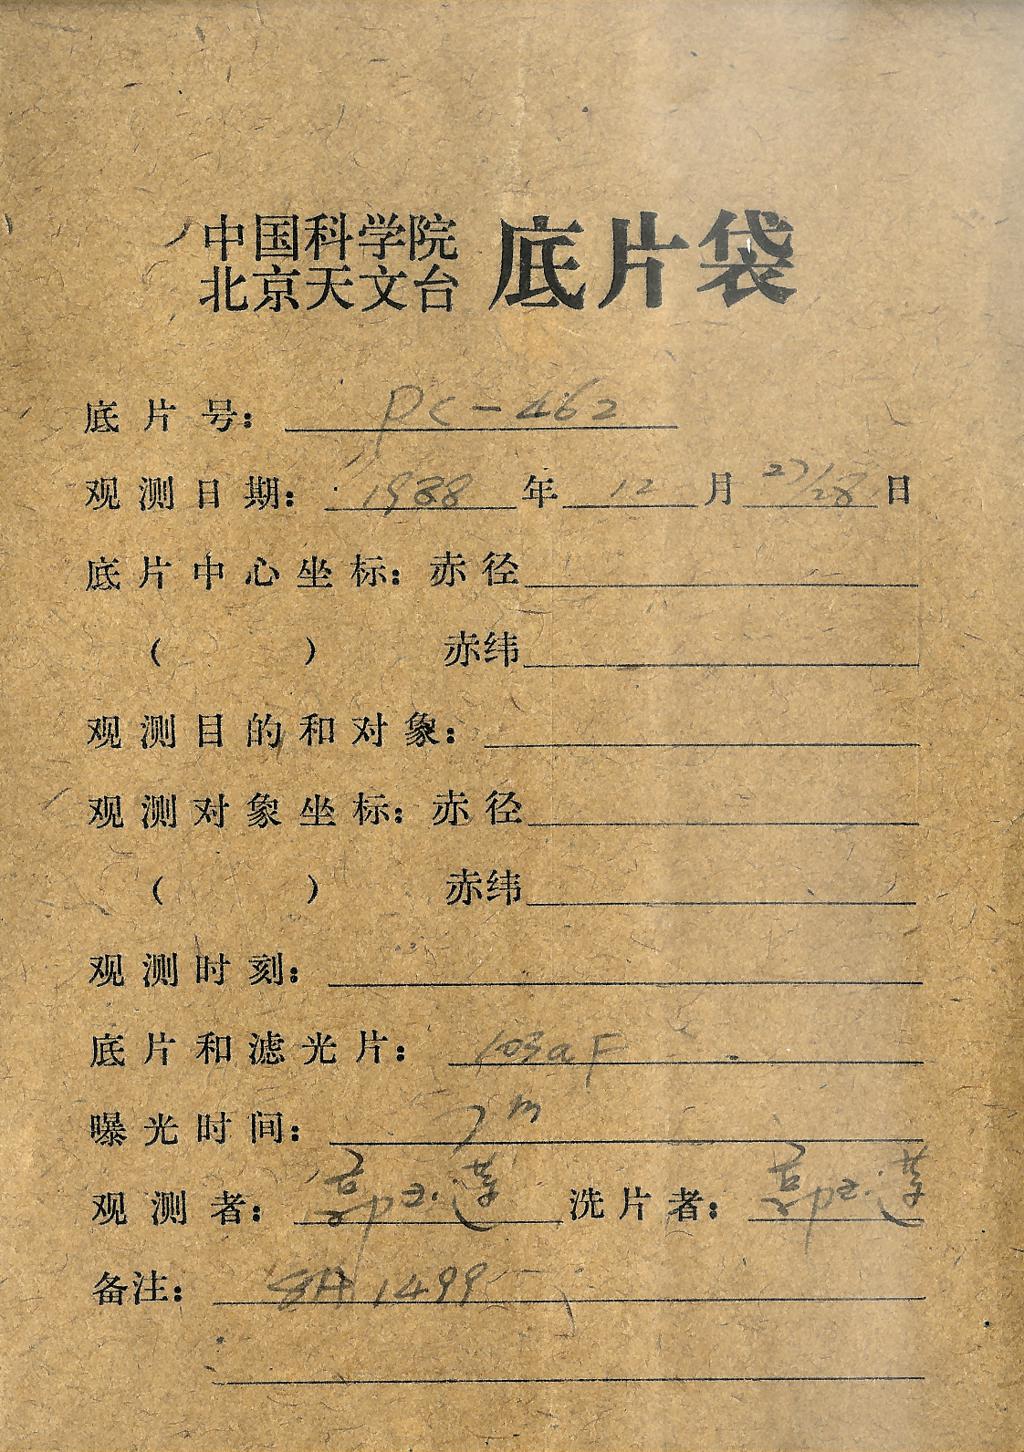 中国科学院
北京天文台 底片袋
底片号: PC-462
观测日期: 1988年12月27/28日
底片中心坐标: 赤径
( ) 赤纬
观测目的和对象:
观测对象坐标: 赤径
( ) 赤纬
观测时刻:
底片和滤光片: 103aF
曝光时间: 7m
观测者: 郭玉莲 洗片者: 郭玉莲
备注: SA 1499